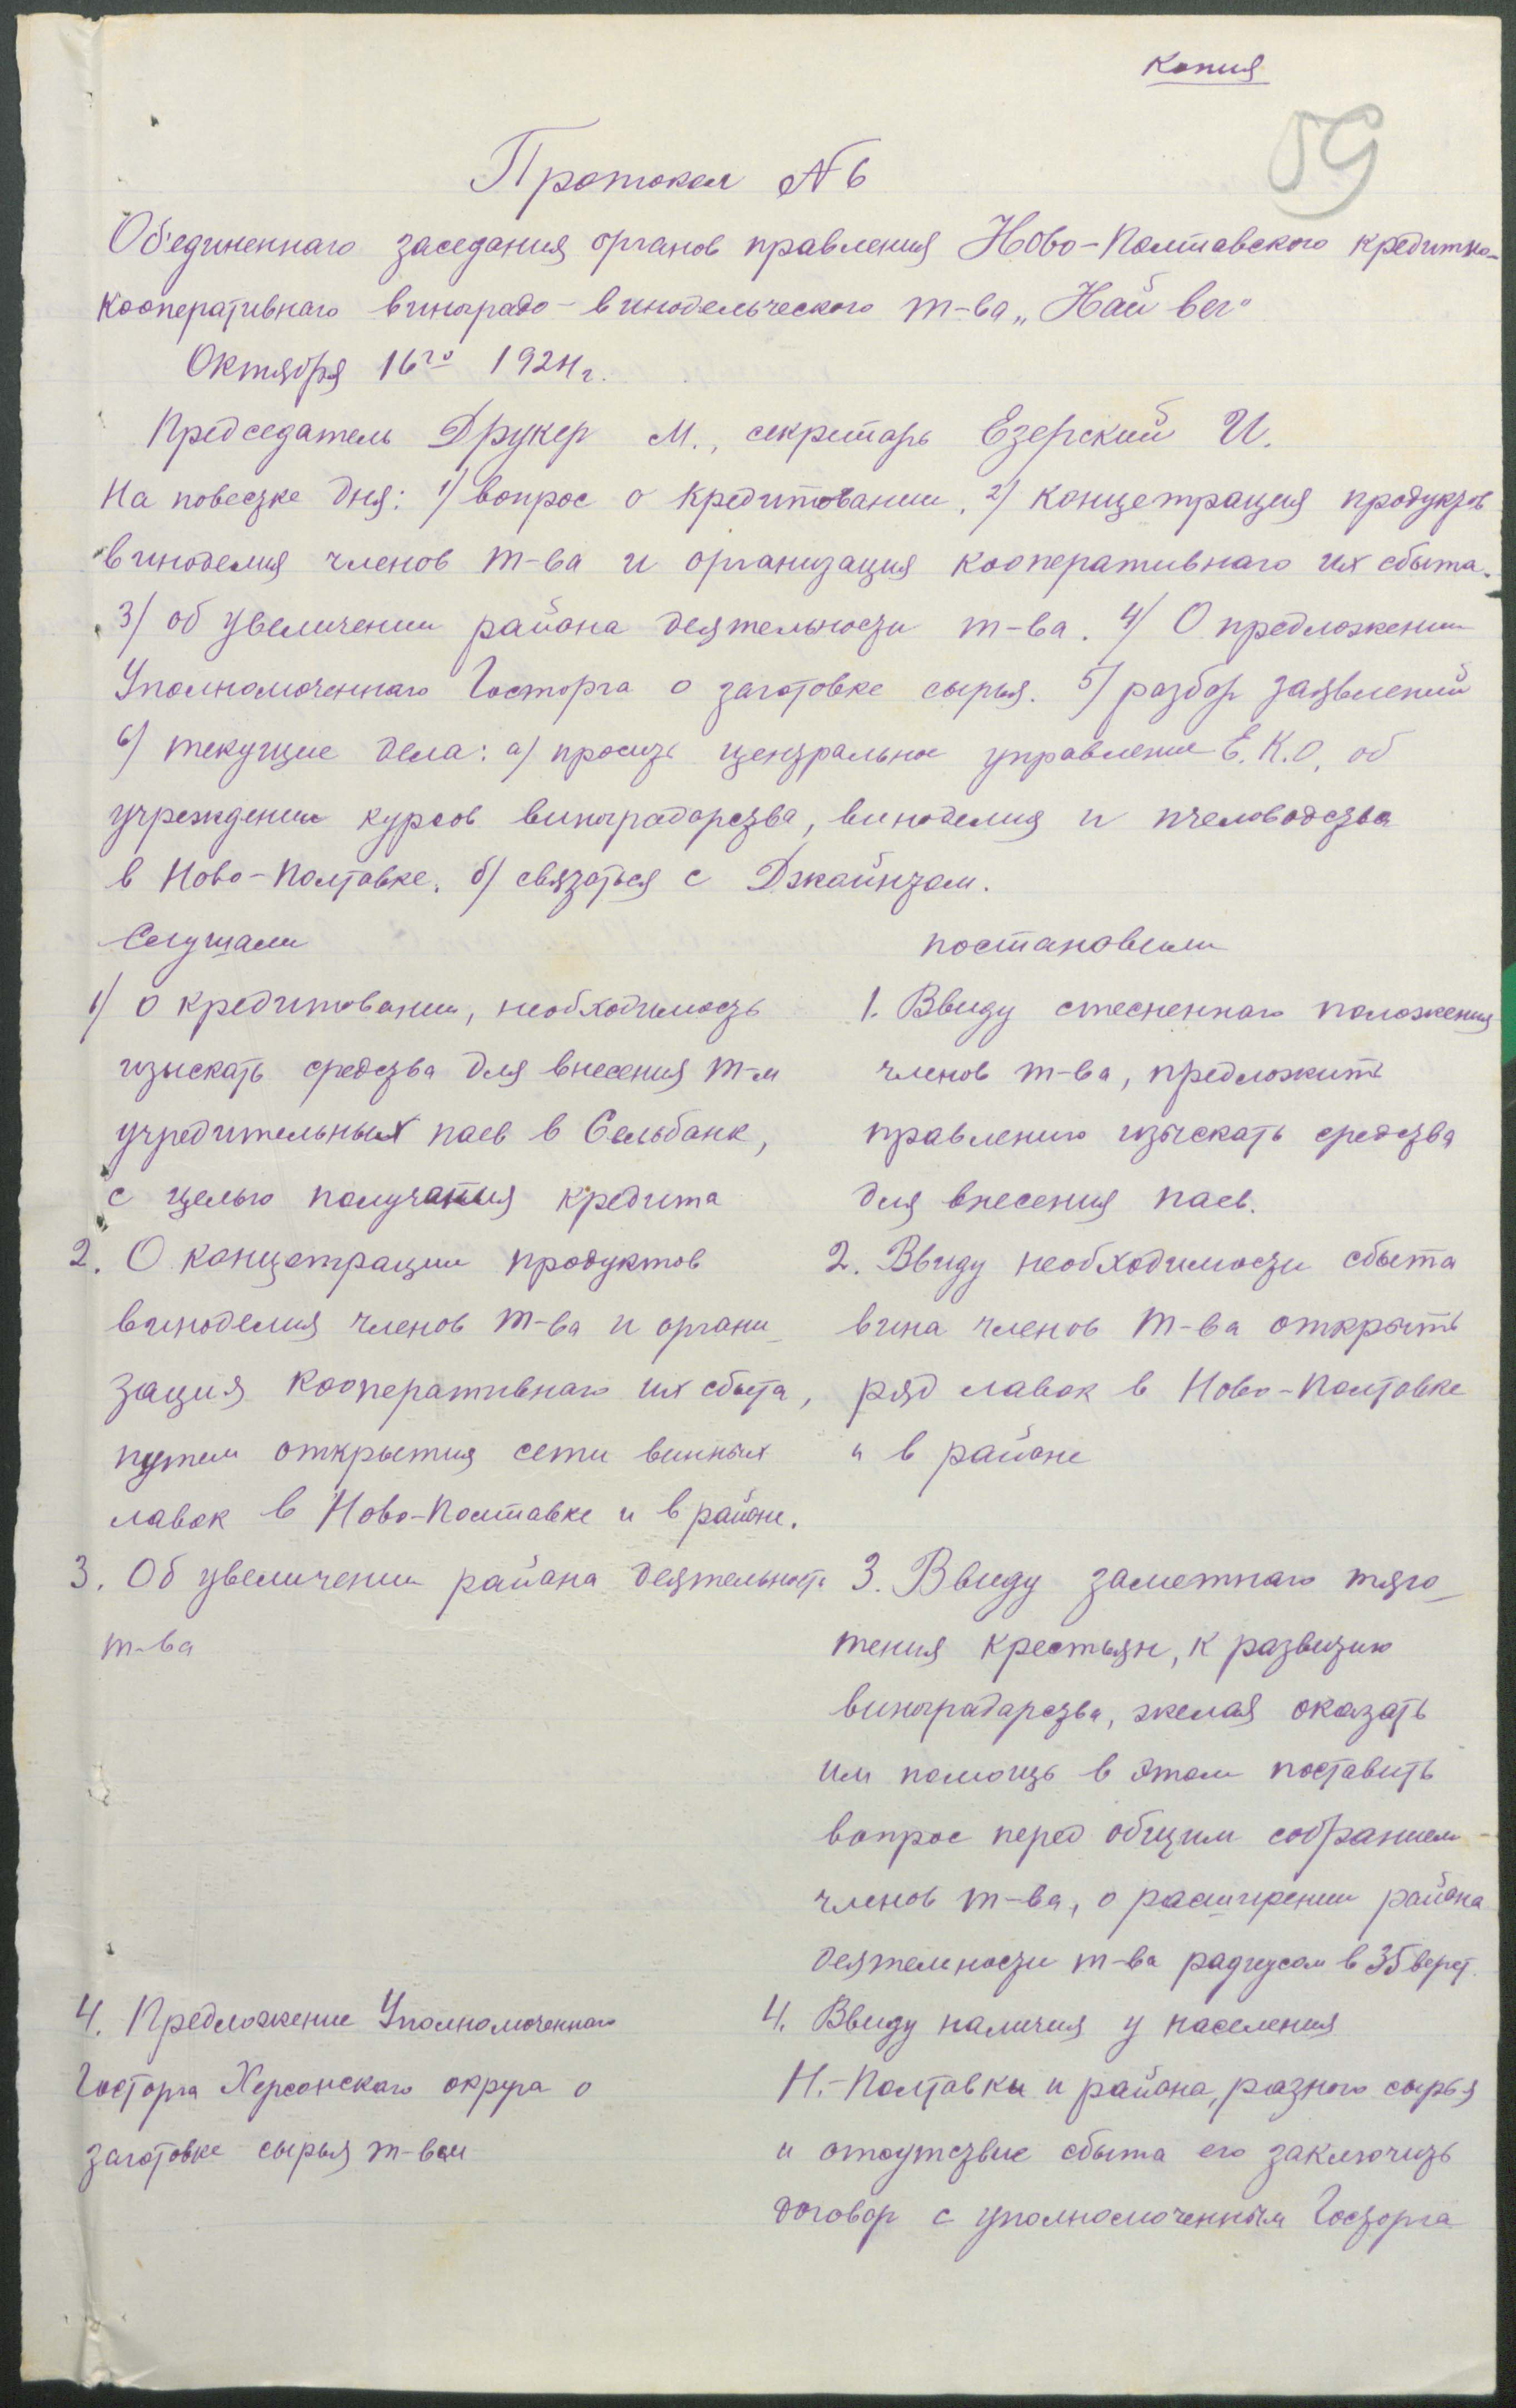 Копия
59
Протокол № 6
Об'единеннаго заседания органов правления Ново-Полтавского кредитно-
кооперативнаго виноградо-винодельческого т-ва „Най вег"
Октября 16го 1924г.
Председатель Друкер М., секретарь Езерский И.
На повестке дня: 1) вопрос о кредитовании, 2) концетрация продуктов
виноделия членов т-ва и организация кооперативнаго их сбыта.
3) об увеличении района деятельности т-ва. 4) О предложении
Уполномоченнаго Госторга о заготовке сырья. 5) разбор заявлений
6) текущие дела: а) просить центральное управление Е.К.О. об
учреждении курсов виноградарства, виноделия и пчеловодства
в Ново-Полтавке. б) связаться с Джайнтом.
Слушали
1) о кредитовании, необходимость
изыскать средства для внесения т-м
учредительных паев в Сельбанк,
с целью получания кредита
2. О концетрации продуктов
виноделия членов т-ва и органи-
зация кооперативнаго их сбыта,
путем открытия сети винных
лавок в Ново-Полтавке и в районе.
3. Об увеличении района деятельности
т-ва
4. Предложение Уполномоченнаго
Госторга Херсонскаго округа о
заготовке сырья т-вом
постановили
1. Ввиду стесненнаго положения
членов т-ва, предложить
правлению изыскать средства
для внесения паев.
2. Ввиду необходимости сбыта
вина членов т-ва открыть
ряд лавок в Ново-Полтавке
и в районе
3. Ввиду заметнаго тяго-
тения крестьян, к развитию
виноградарства, желая оказать
им помощь в этом поставить
вопрос перед общим собранием
членов т-ва, о расширении района
деятелности т-ва радиусом в 35 верст.
4. Ввиду наличия у населения
Н.-Полтавки и района, разного сырья
и отсутствие сбыта его заключить
договор с уполномоченным Госторга